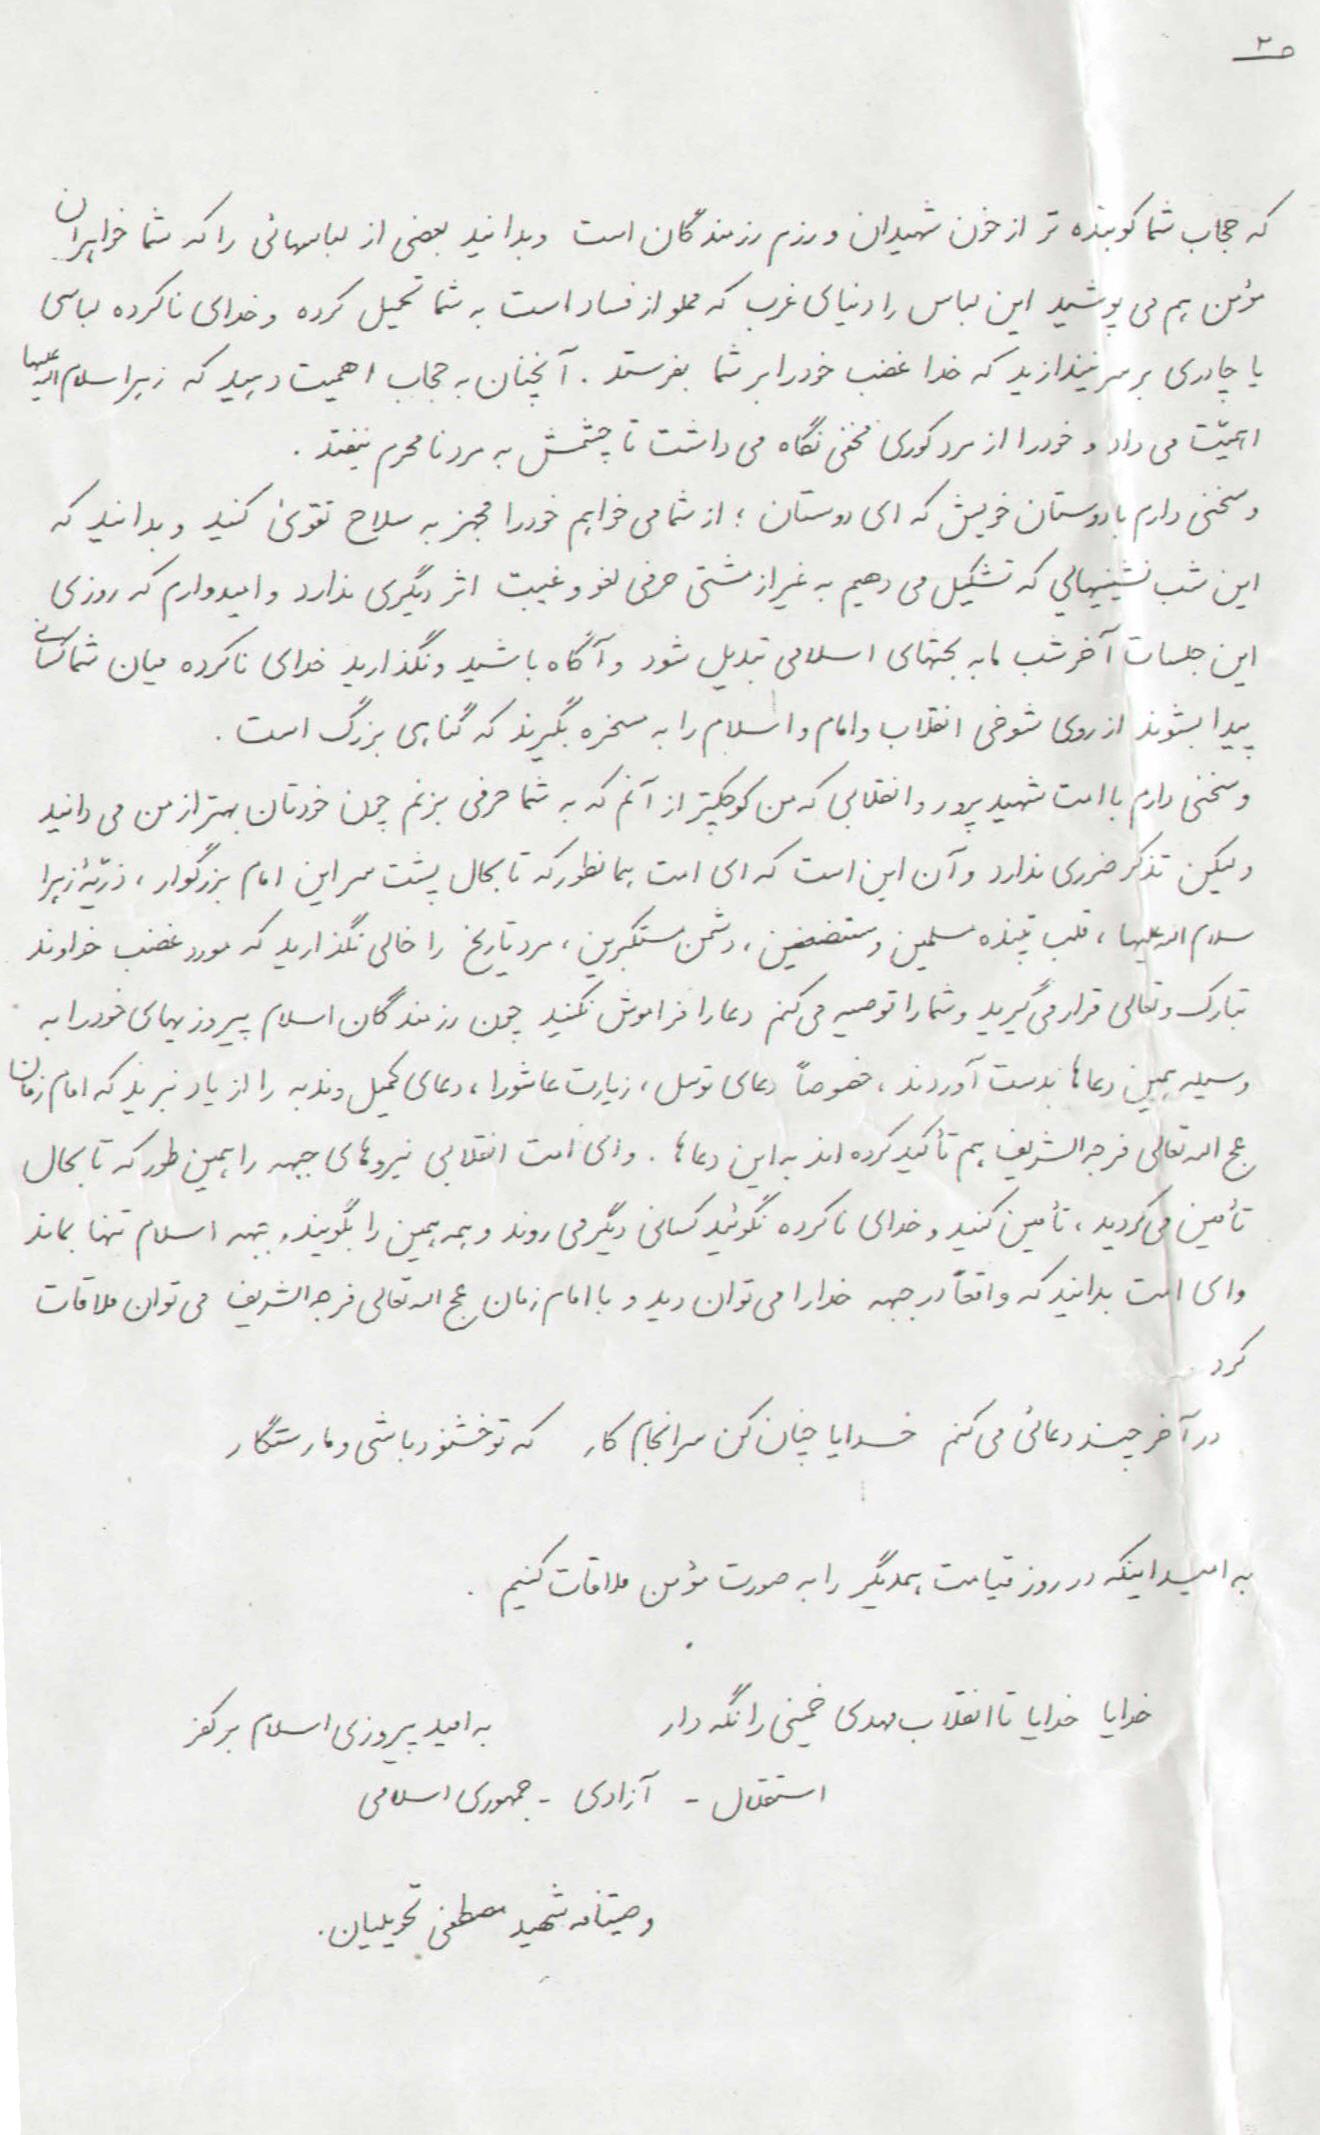 ص۲
که حجاب شما کوبنده تر از خون شهیدان و رزم رزمندگان است وبدانید بعضی از لباسهائی را که شما خواهران
مؤمن هم می پوشید این لباس را دنیای غرب که مملو از فساد است به شما تحمیل کرده و خدای ناکرده لباسی
یا چادری بر سر نیندازید که خدا غضب خود را بر شما بفرستد . آنچنان به حجاب اهمیت دهید که زهرا سلام الله علیها
اهمیّت می داد و خود را از مرد کوری مخفی نگاه می داشت تا چشمش به مرد نامحرم نیفتد .
و سخنی دارم با دوستان خویش که ای دوستان ؛ از شما می خواهم خود را مجهز به سلاح تقویٰ کنید و بدانید که
این شب نشینیهایی که تشکیل می دهیم به غیر از مشتی حرفی لغو و غیبت اثر دیگری ندارد و امیدوارم که روزی
این جلسات آخر شب ما به بحثهای اسلامی تبدیل شود و آگاه باشید و نگذارید خدای ناکرده میان شما کسانی
پیدا بشوند از روی شوخی انقلاب و امام و اسلام را به مسخره بگیرند که گناهی بزرگ است .
و سخنی دارم با امت شهید پرور و انقلابی که من کوچکتر از آنم که به شما حرفی بزنم چون خودتان بهتر از من می دانید
ولیکن تذکر ضرری ندارد و آن این است که ای امت همانطور که تا بحال پشت سر این امام بزرگوار ، ذرّیّهٔ زهرا
سلام الله علیها ، قلب تپنده مسلمین و مستضعفین ، دشمن مستکبرین ، مرد تاریخ را خالی نگذارید که مورد غضب خداوند
تبارک و تعالی قرار می گیرید و شما را توصیه می کنم دعا را فراموش نکنید چون رزمندگان اسلام پیروزیهای خود را به
وسیله همین دعاها بدست آوردند ، خصوصاً دعای توسل ، زیارت عاشورا ، دعای کمیل و ندبه را از یاد نبرید که امام زمان
عج الله تعالی فرجه الشریف هم تأکید کرده اند به این دعاها . و ای امت انقلابی نیروهای جبهه را همین طور که تا بحال
تأمین می کردید ، تأمین کنید و خدای ناکرده نگوئید کسانی دیگر می روند و همه همین را بگویند و جبهه اسلام تنها بماند
و ای امت بدانید که واقعاً در جبهه خدا را می توان دید و با امام زمان عج الله تعالی فرجه الشریف می توان ملاقات
کرد .
در آخر چند دعائی می کنم خدایا چنان کن سرانجام کار که تو خشنود باشی و ما رستگار
به امید اینکه در روز قیامت همدیگر را به صورت مؤمن ملاقات کنیم .
خدایا خدایا تا انقلاب مهدی خمینی را نگه دار به امید پیروزی اسلام بر کفر
استقلال - آزادی - جمهوری اسلامی
وصیتنامه شهید مصطفی تحویلیان .